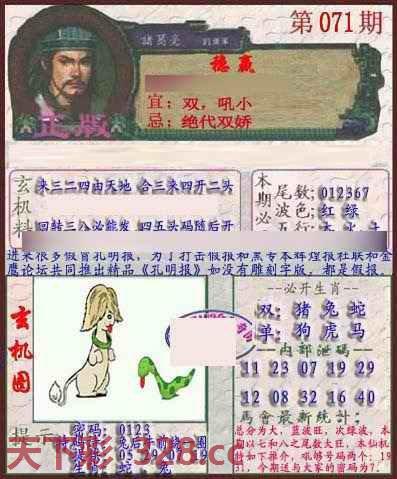 第071期
諸葛亮
稳赢
宜：双，吼小
忌：绝代双娇
正版
玄机料
来三二四由天地 合三来四开二头
回转三八必能发 四五头码随后开
本期必
尾数：012367
波色：红 绿
近来很多假冒孔明报，为了打击假报和黑专本辉煌报社联和金
鹰论坛共同推出精品《孔明报》如没有雕刻字版，都是假报。
玄机图
必开生肖
双：猪 兔 蛇
单：狗 虎 马
内部泄码
11 23 07 19 29
12 08 32 16 40
馬會最新統計：
总分为大，蓝波旺，次绿波，本
期以七和八之尾数大旺，本仙机
31，今期送与大家的密码为7．
提示
密码：0123
天下彩-328.cc